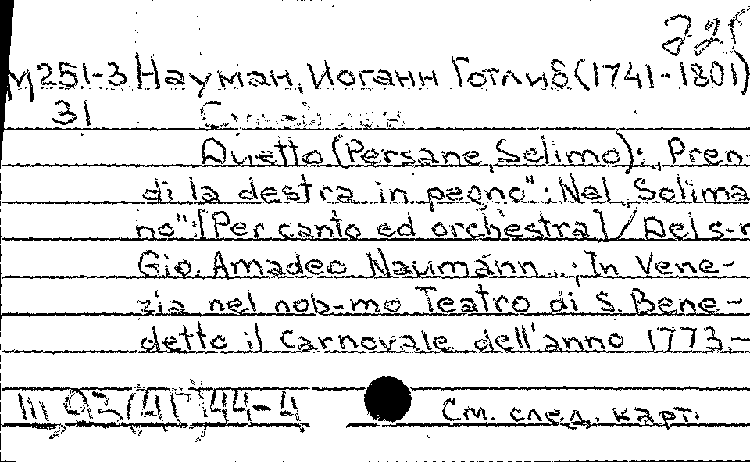 225
М251-3 Науман, Иоганн Готлиб (1741-1801)
31 Сулейман
Duetto (Persane, Selimo): „Pren-
di la destra in pegno": Nel „Solima
no": [Per canto ed orchestra] / Del s-r
Gio. Amadeo Naumann...; In Vene-
zia nel nob-mo Teatro di S. Bene-
detto il Carnovale dell'anno 1773.—
44-4 См. след. карт.